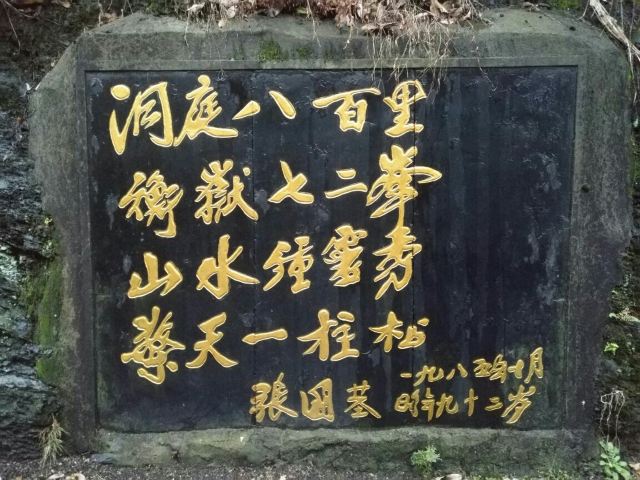 洞庭八百里
衡嶽七二峯
山水鍾靈秀
擎天一柱松
張国基
一九八五年十月
时年九十二岁